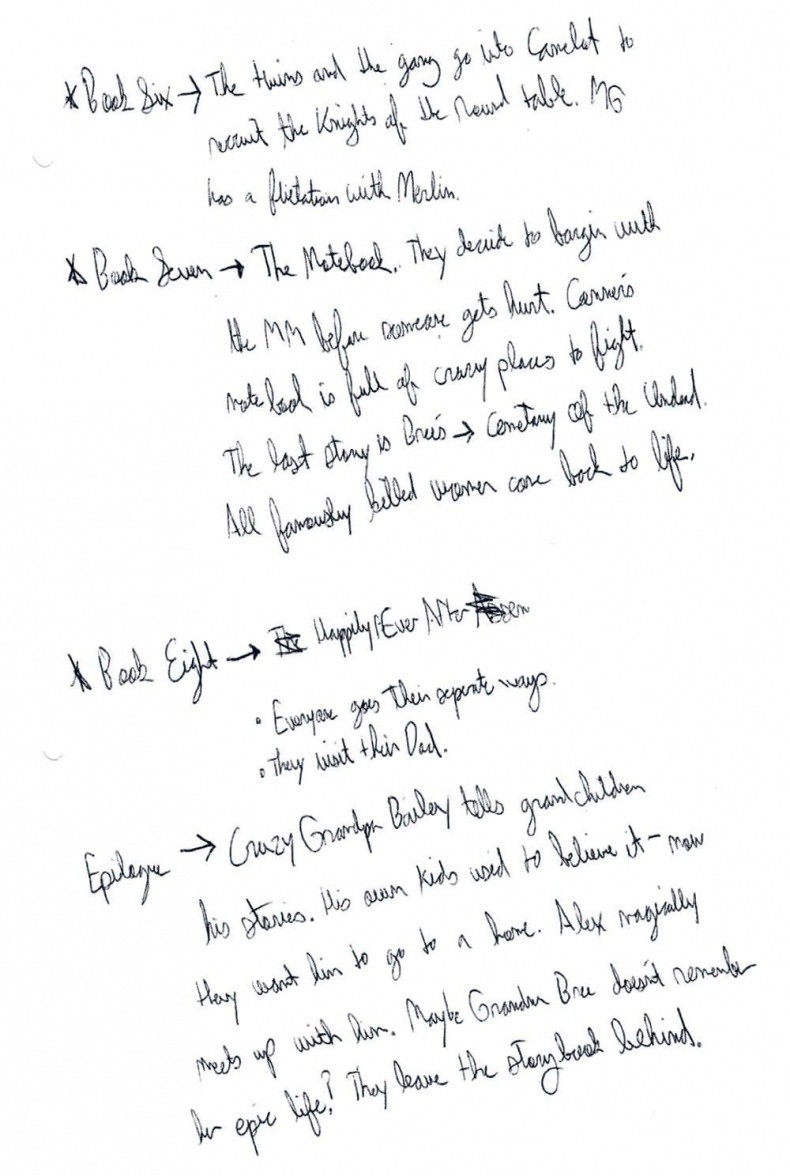 * Book Six → The twins and the gang go into Camelot to
recruit the Knights of the Round table. MG
has a flirtation with Merlin.
* Book Seven → The Notebook. They decide to bargin with
the MM before someone gets hurt. Conner's
notebook is full of crazy places to fight.
The last story is Bree's → Cemetary of the Undead.
All famously killed women come back to life.
* Book Eight → Happily Ever After
• Everyone goes their separate ways.
• They visit their Dad.
Epilogue → Crazy Grandpa Bailey tells grandchildren
his stories. His own kids used to believe it - now
they want him to go to a home. Alex magically
meets up with him. Maybe Grandma Bree doesn't remember
her epic life? They leave the storybook behind.